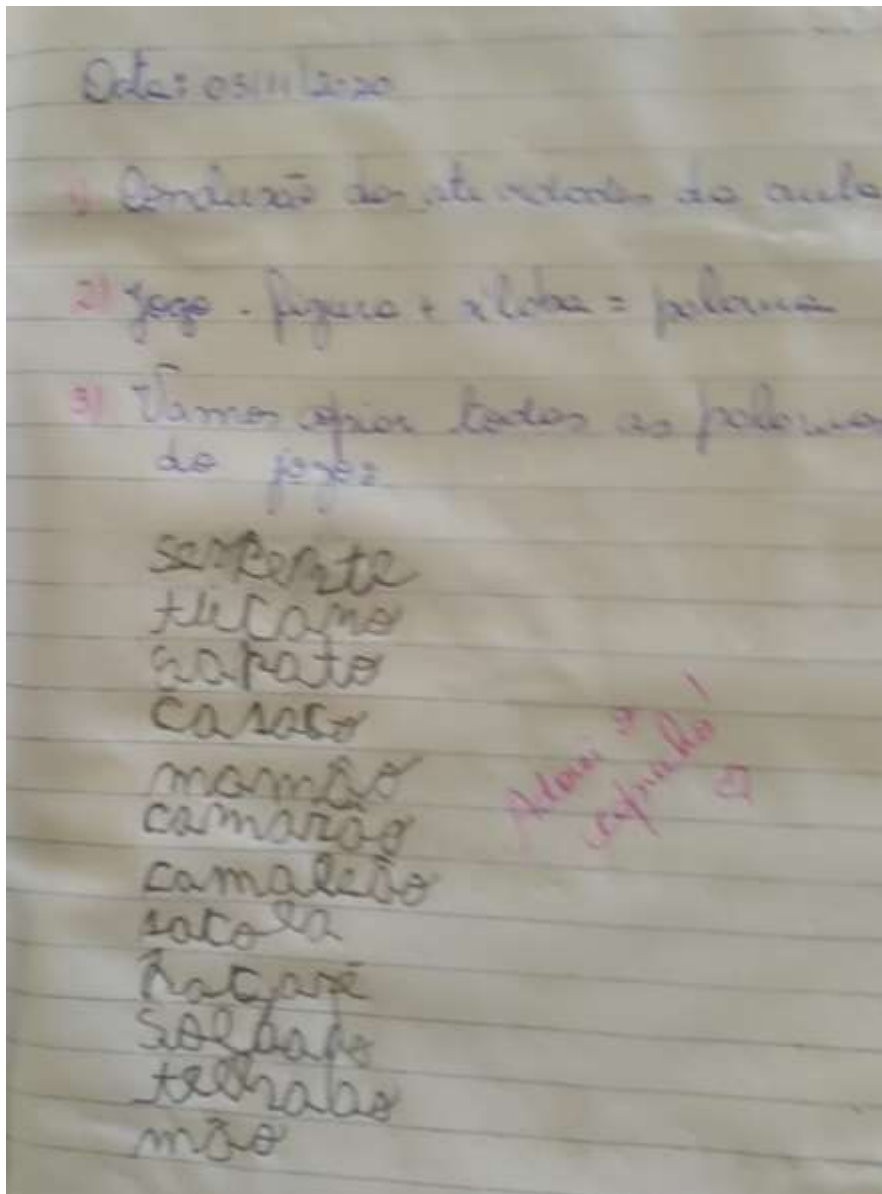 Data: 05/11/2020
1) Conclusão das atividades da aula
2) Jogo - figura + sílaba = palavra
3) Vamos copiar todas as palavras
do jogo:
serpente
tucano
sapato
casaco
mamão
camarão
camaleão
sacola
jacaré
soldado
telhado
mão
Adorei o
capricho!